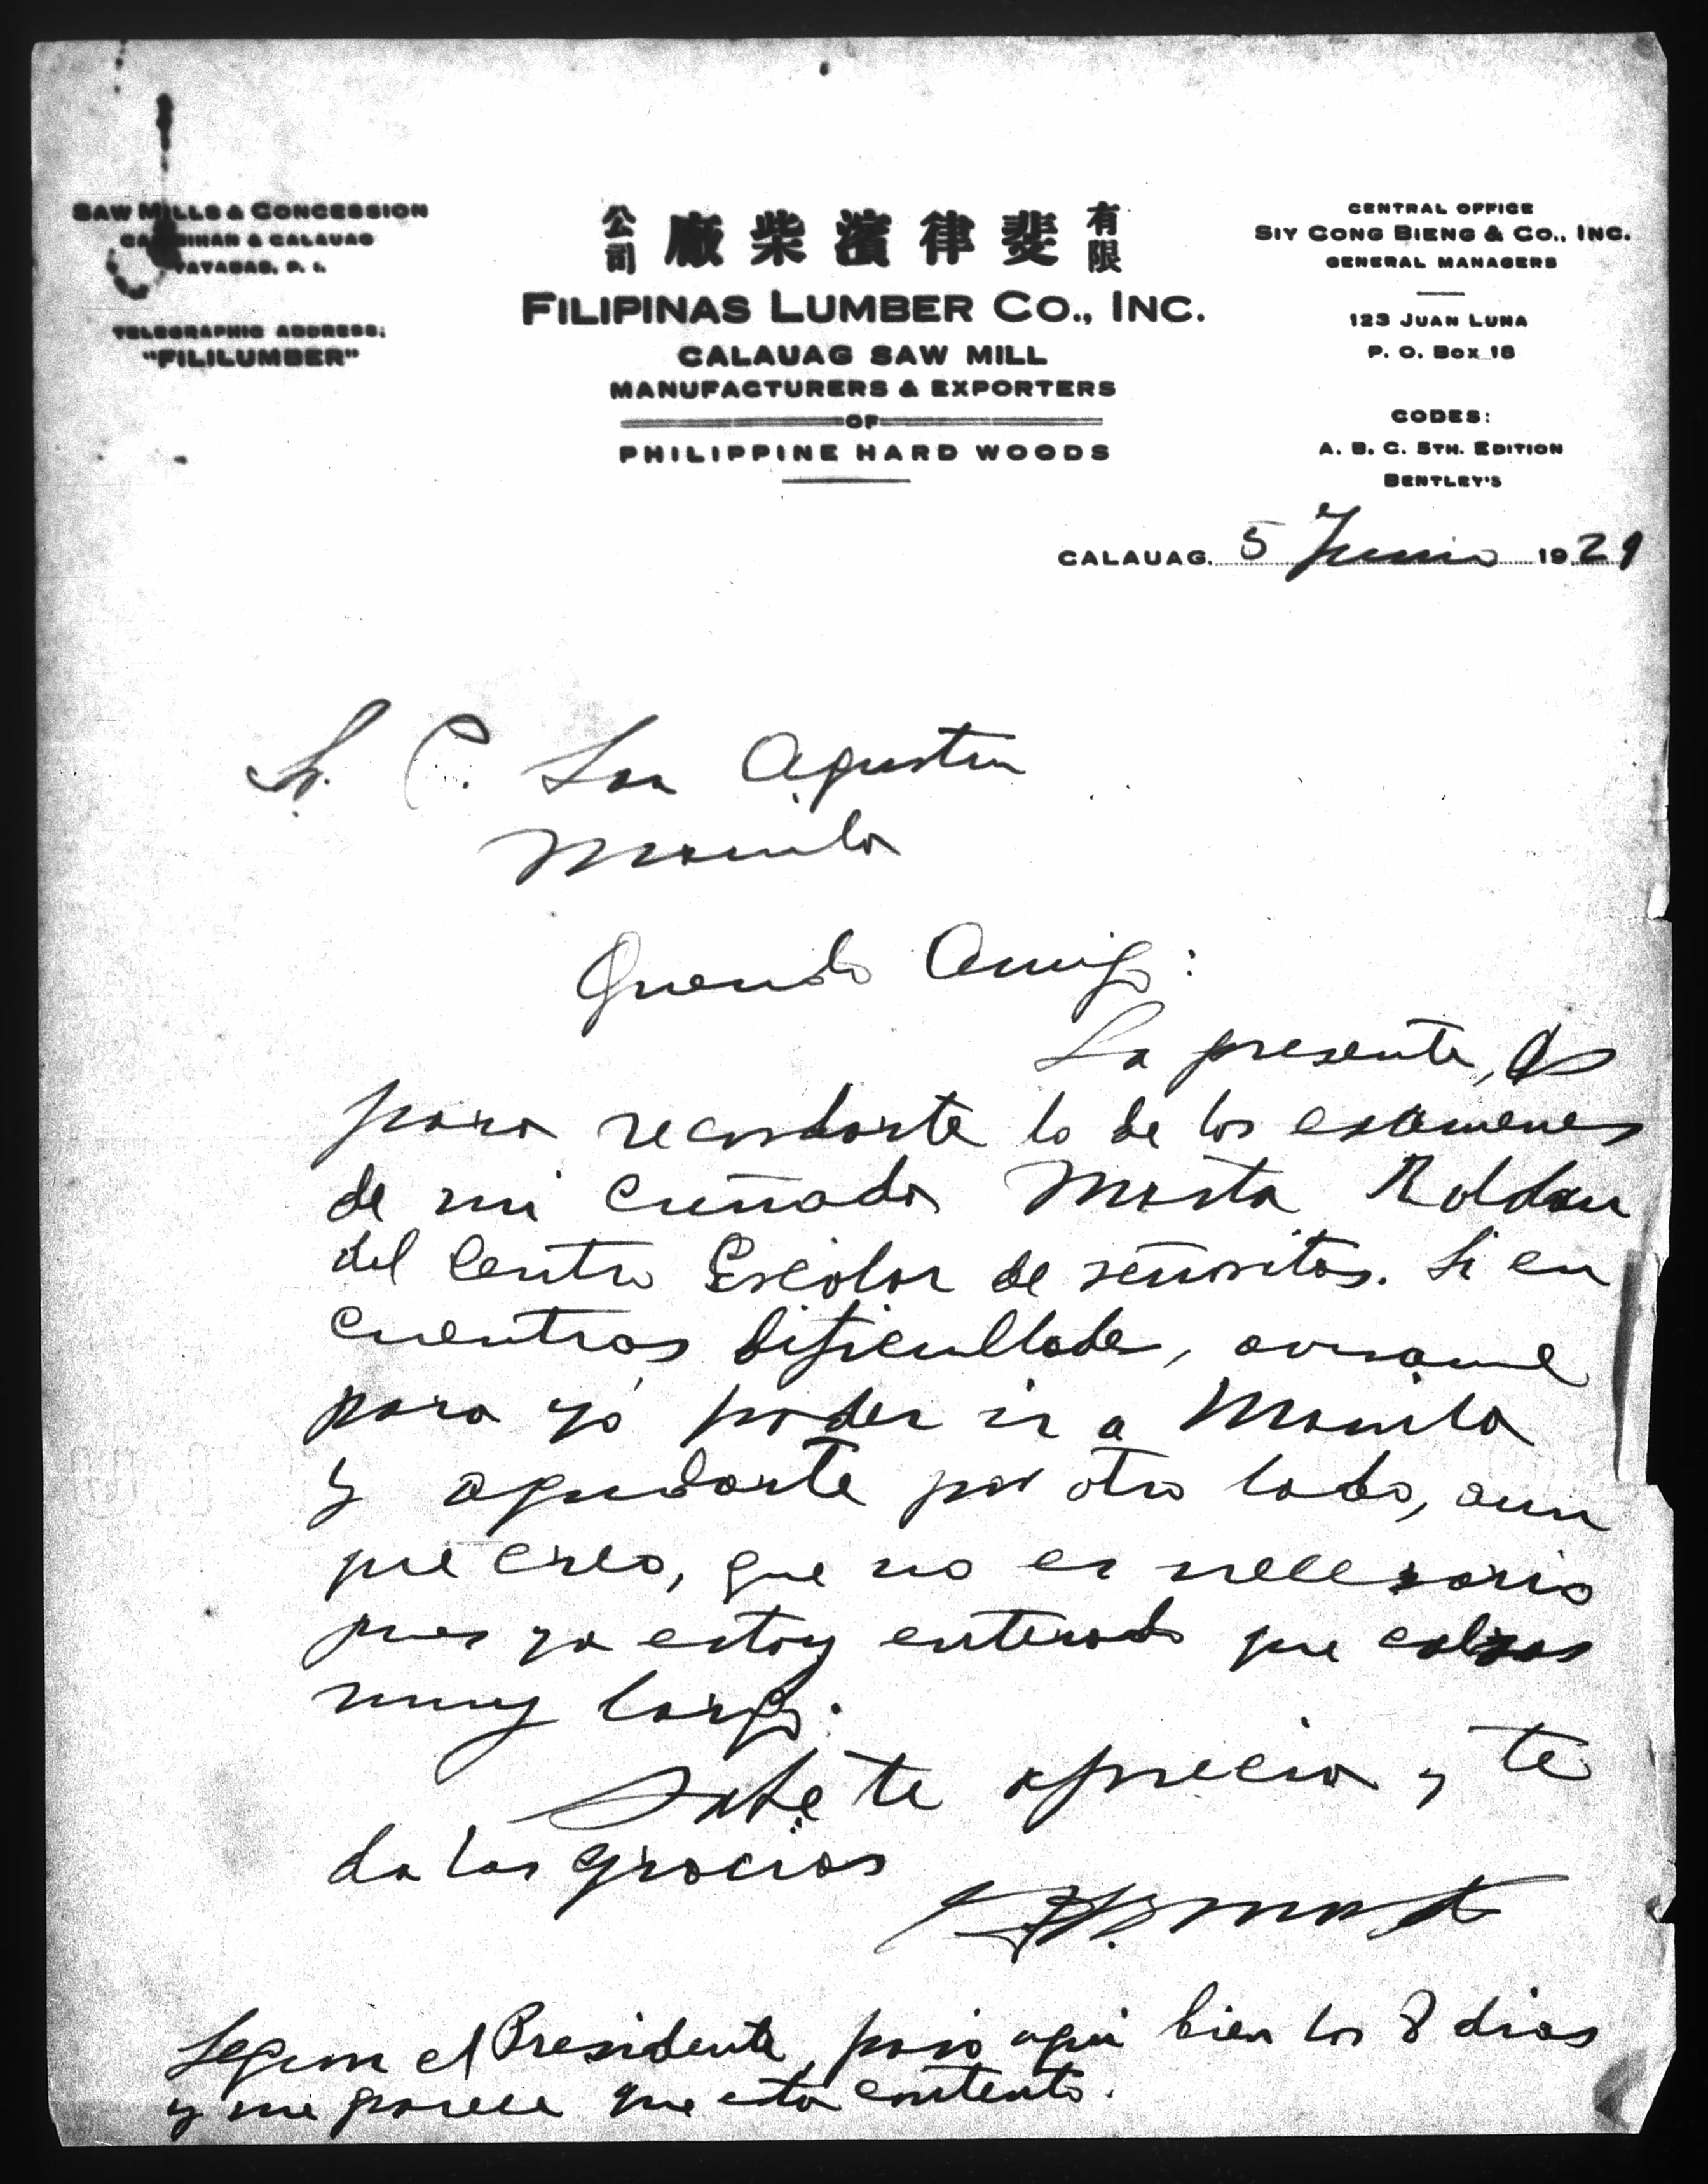 SAW MILLS & CONCESSION
& CALAUAG
TAYABAS, P. I.
TELEGRAPHIC ADDRESS:
"FILILUMBER"
公司 廠柴濱律斐 有限
FILIPINAS LUMBER CO., INC.
CALAUAG SAW MILL
MANUFACTURERS & EXPORTERS
OF
PHILIPPINE HARD WOODS
CENTRAL OFFICE
SIY CONG BIENG & CO., INC.
GENERAL MANAGERS
123 JUAN LUNA
P. O. BOX 18
CODES:
A. B. C. 5TH. EDITION
BENTLEY'S
CALAUAG, 5 Junio 1929
Sr. C. San Agustin
Manila
Querido Amigo:
La presente, es
para recordarte lo de los examenes
de mi cuñada Marta Roldan
del Centro Escolar de señoritas. Si en
cuentras dificultades, avisame
para yo poder ir a Manila
y ayudarte por otro lado, aun
que creo, que no es necesario
pues ya estoy enterado que calzas
muy largo.
Sabe te aprecia y te
da las gracias
Segun el Presidente, paso aqui bien los 8 dias
y me parece que esta contento.